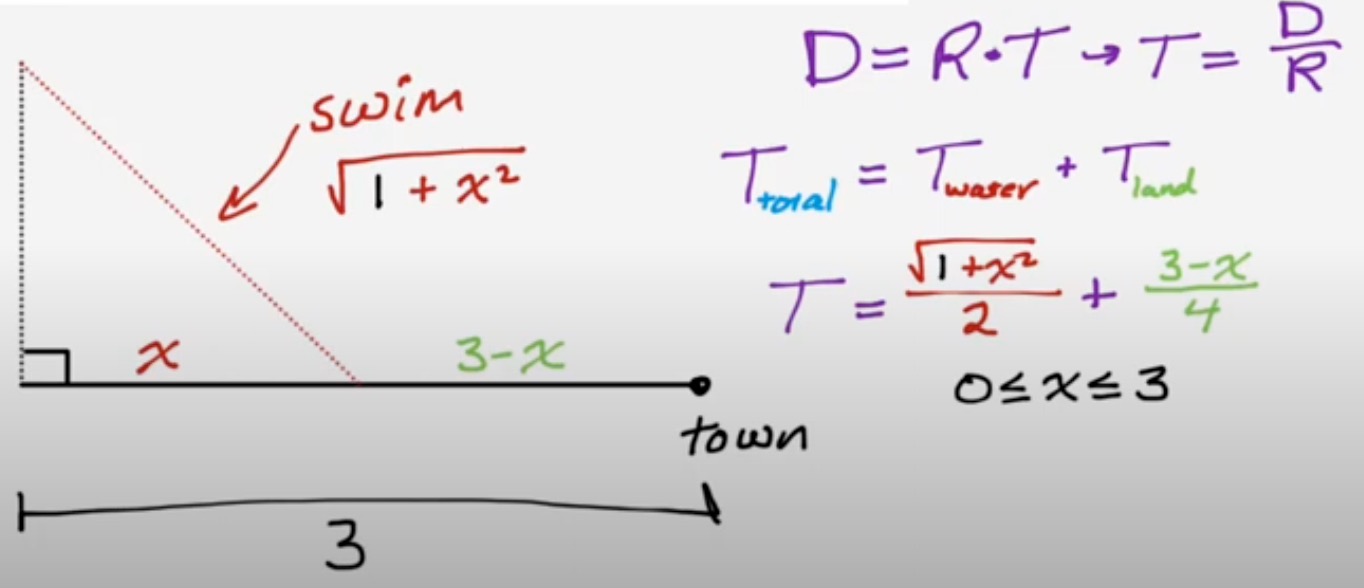 swim
√(1 + x²)
x
3-x
town
3
D = R·T → T = D/R
T total = T water + T land
T = √(1+x²)/2 + 3-x/4
0 ≤ x ≤ 3